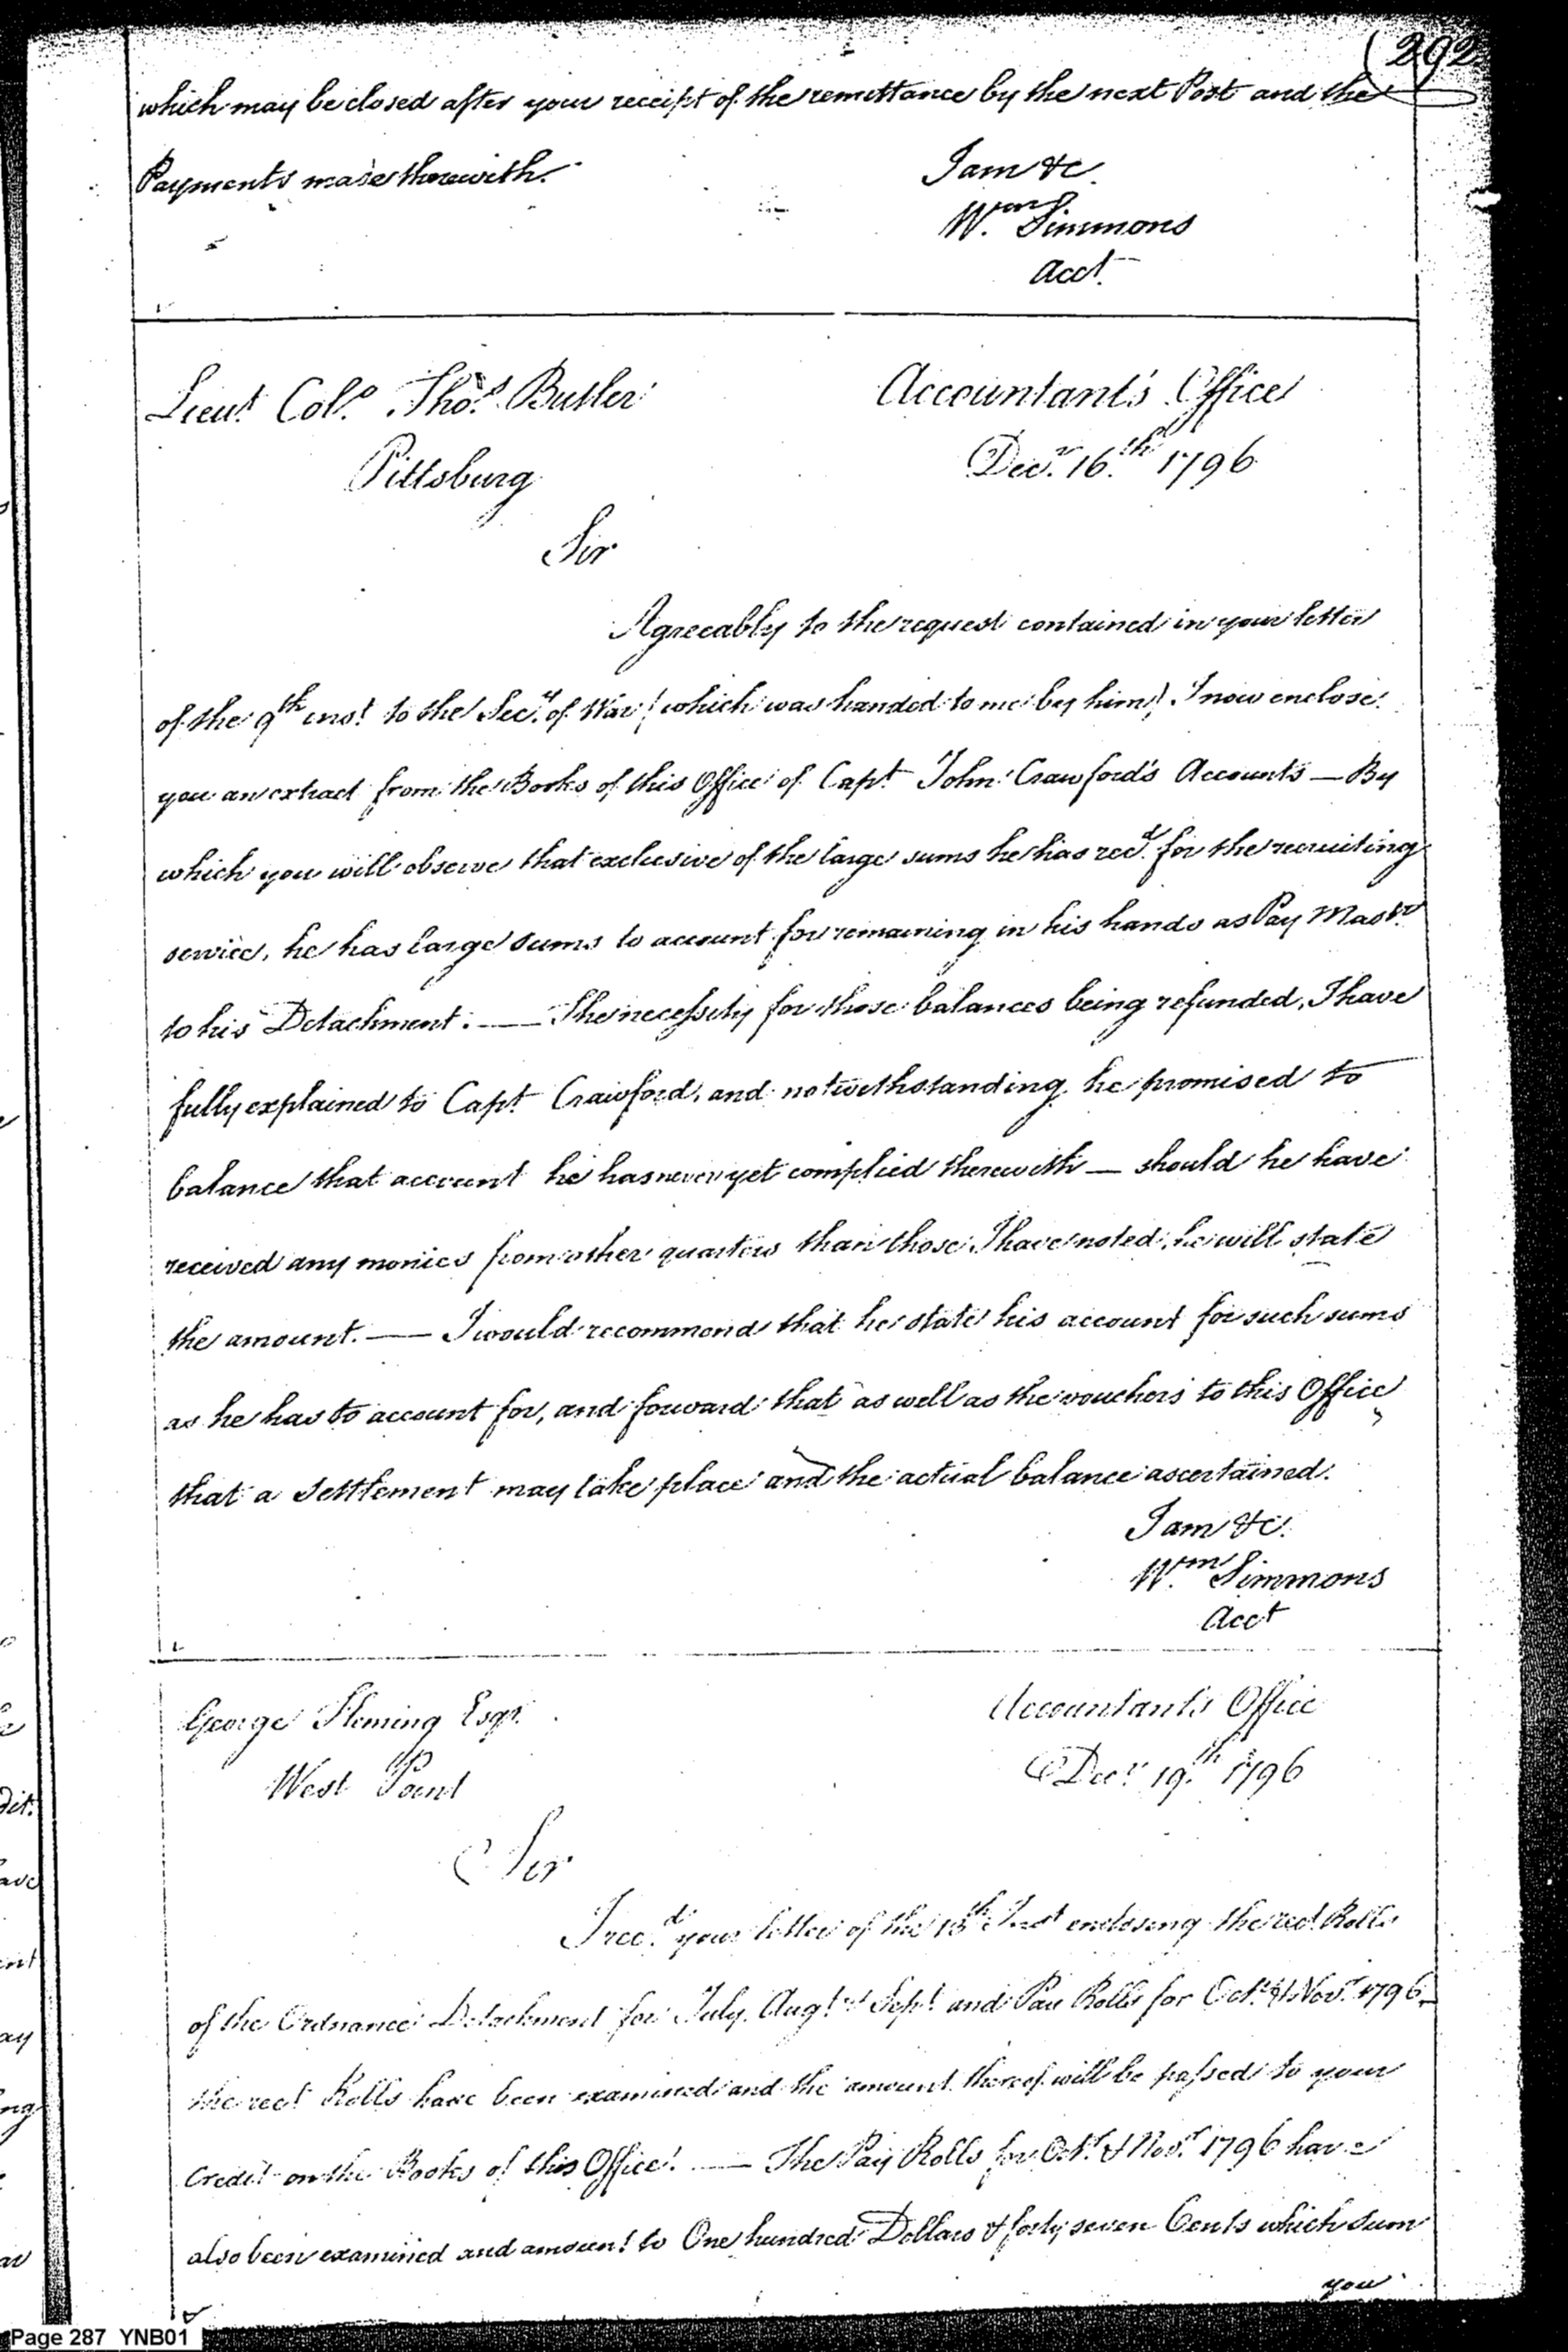 (292
which may be closed after your receipt of the remittance by the next Post and the
Payments made therewith.
I am &c.
Wm. Simmons
Acct.
Lieut. Colo. Thos. Butler
Accountant's Office
Pittsburg
Decr. 16th. 1796
Sir
Agreeably to the request contained in your letter
of the 9th inst. to the Secy. of War (which was handed to me by him). I now enclose
you an extract from the Books of this Office of Capt. John Crawford's Accounts — By
which you will observe that exclusive of the large sums he has recd. for the recruiting
service, he has large sums to account for remaining in his hands as Pay Mastr.
to his Detachment. — The necessity for those balances being refunded, I have
fully explained to Capt Crawford, and notwithstanding he promised to
balance that account he has never yet complied therewith — should he have
received any monies from other quarters than those I have noted, he will state
the amount. — I would recommend that he state his account for such sums
as he has to account for, and forward that as well as the vouchers to this Office,
that a settlement may take place and the actual balance ascertained.
I am &c.
Wm. Simmons
Acct
George Fleming Esqr.
Accountant's Office
West Point
Decr. 19th. 1796
Sir
I recd. your letter of the Inst enclosing the rect Rolls
of the Ordnance Detachment for July, Augt. & Sept. and Pay Rolls for Octr. & Novr. 1796 —
the rect. Rolls have been examined and the amount thereof will be passed to your
Credit on the Books of this Office. — The Pay Rolls for Octr. & Novr. 1796 have
also been examined and amount to One hundred Dollars & forty seven Cents which sum
you
Page 287 YNB01